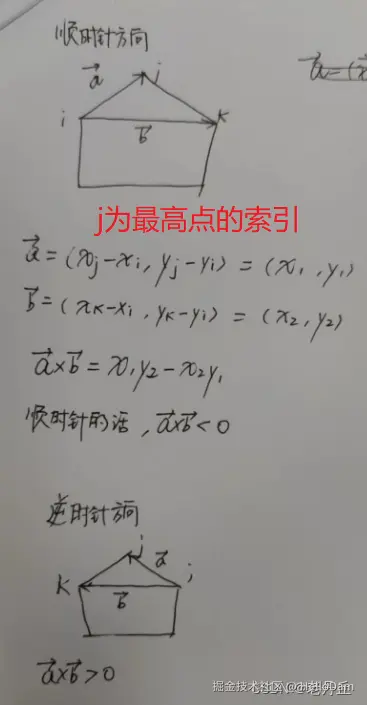 顺时针方向
a j
i b k
a=(x
j为最高点的索引
a=(xj-xi,yj-yi)=(x1,y1)
b=(xk-xi,yk-yi)=(x2,y2)
a×b=x1y2-x2y1
顺时针的话,a×b<0
逆时针方向
j a
k b i
a×b>0
掘金技术社区@HelloDam